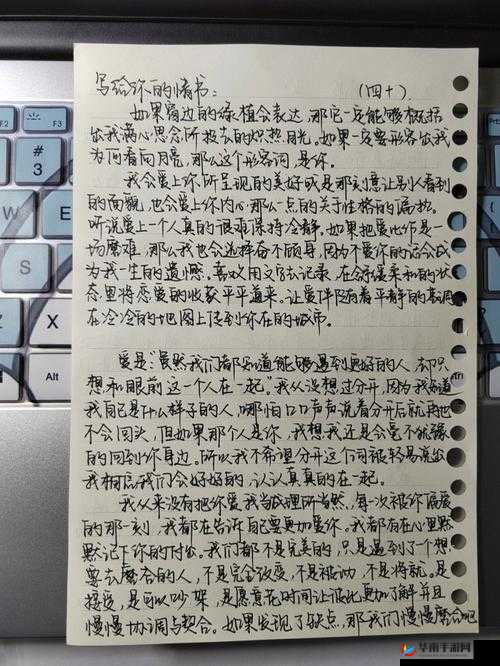 写给你的情书：（四十）
如果窗边的绿植会表达，那它一定能够概括
出我满心思念所投去的炽热目光。如果一定要形容出我
为何看向月亮，那么这个形容词，是你。
我会爱上你所呈现的美好或是那刻意让别人看到
的面貌，也会爱上你内心那么一点的关于性格的偏执。
听说爱上一个人真的很难保持冷静，如果把爱比作是一
场磨难，那么我也会选择奋不顾身，因为不爱你的话会成
为我一生的遗憾。喜欢用文字去记录，在舒缓柔和的状
态里将恋爱的收获平平道来。让爱伴随着平静的基调
在冷冷的地图上传到你在的城市。
爱是“虽然我们都知道能够遇到更好的人，却只
想和眼前这一个人在一起”。我从没想过分开，因为我知道
我自己是什么样子的人，哪怕口口声声说着分开后就再也
不会回头，但如果那个人是你，我想我还是会毫不犹豫
的回到你身边。所以我不希望分开这个词被轻易说出
我相信我们会好好的，认认真真的在一起。
我从来没有把你爱我当成理所当然，每一次被你偏爱
的那一刻，我都在告诉自己要更加爱你。我都有在心里默
默记下你的付出。我们都不是完美的，只是遇到了个想
要去磨合的人，不是完全改变，不是被动，不是将就。是
接受，是可以吵架，是愿意花时间让彼此更加了解并且
慢慢协调与契合。如果发现了缺点，那我们慢慢磨合吧
F2
F3
华南手游网